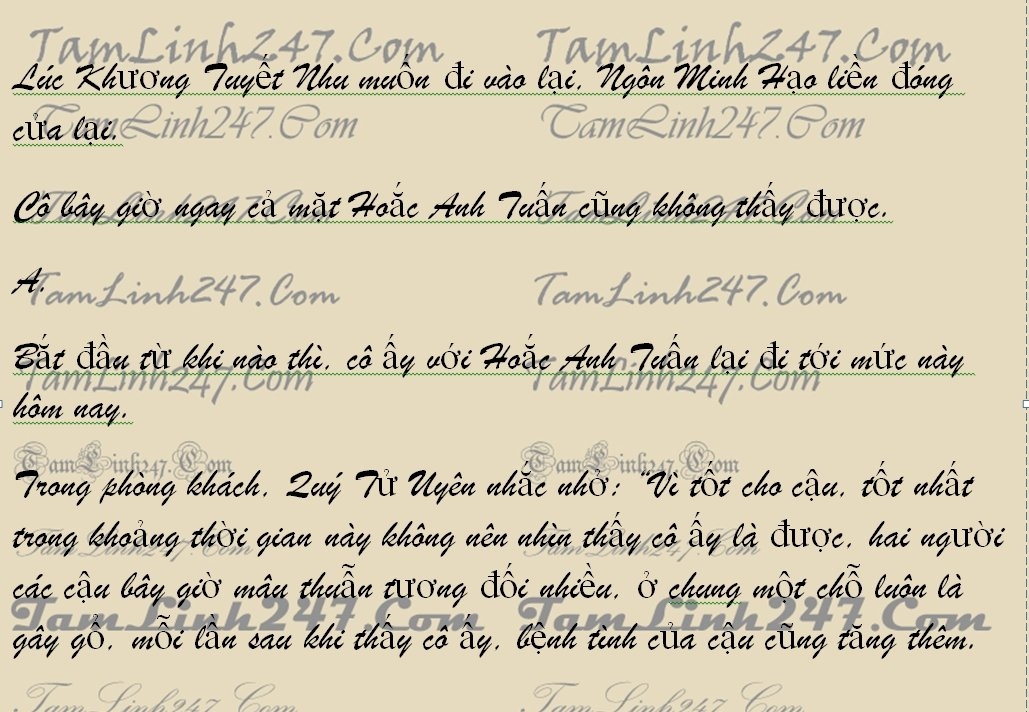 TamLinh247.Com TamLinh247.Com
Lúc Khương Tuyết Nhu muốn đi vào lại, Ngôn Minh Hạo liền đóng
cửa lại.
TamLinh247.Com TamLinh247.Com
Cô bây giờ ngay cả mặt Hoắc Anh Tuấn cũng không thấy được.
TamLinh247.Com TamLinh247.Com
A,
TamLinh247.Com TamLinh247.Com
Bắt đầu từ khi nào thì, cô ấy với Hoắc Anh Tuấn lại đi tới mức này
TamLinh247.Com TamLinh247.Com
hôm nay.
TamLinh247.Com TamLinh247.Com
Trong phòng khách, Quý Tử Uyên nhắc nhở: “Vì tốt cho cậu, tốt nhất
trong khoảng thời gian này không nên nhìn thấy cô ấy là được, hai người
TamLinh247.Com TamLinh247.Com
các cậu bây giờ mâu thuẫn tương đối nhiều, ở chung một chỗ luôn là
TamLinh247.Com TamLinh247.Com
gây gổ, mỗi lần sau khi thấy cô ấy, bệnh tình của cậu cũng tăng thêm.
TamLinh247.Com TamLinh247.Com